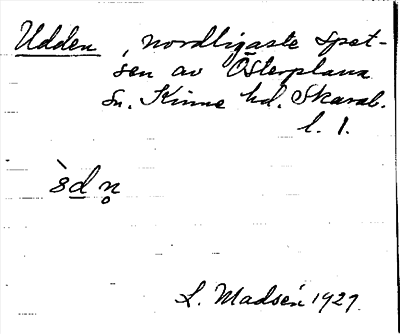 Udden, nordligaste spet-
sen av Österplana
Sn. Kinne hd. Skarab.
l. 1.
L. Madsén 1927.